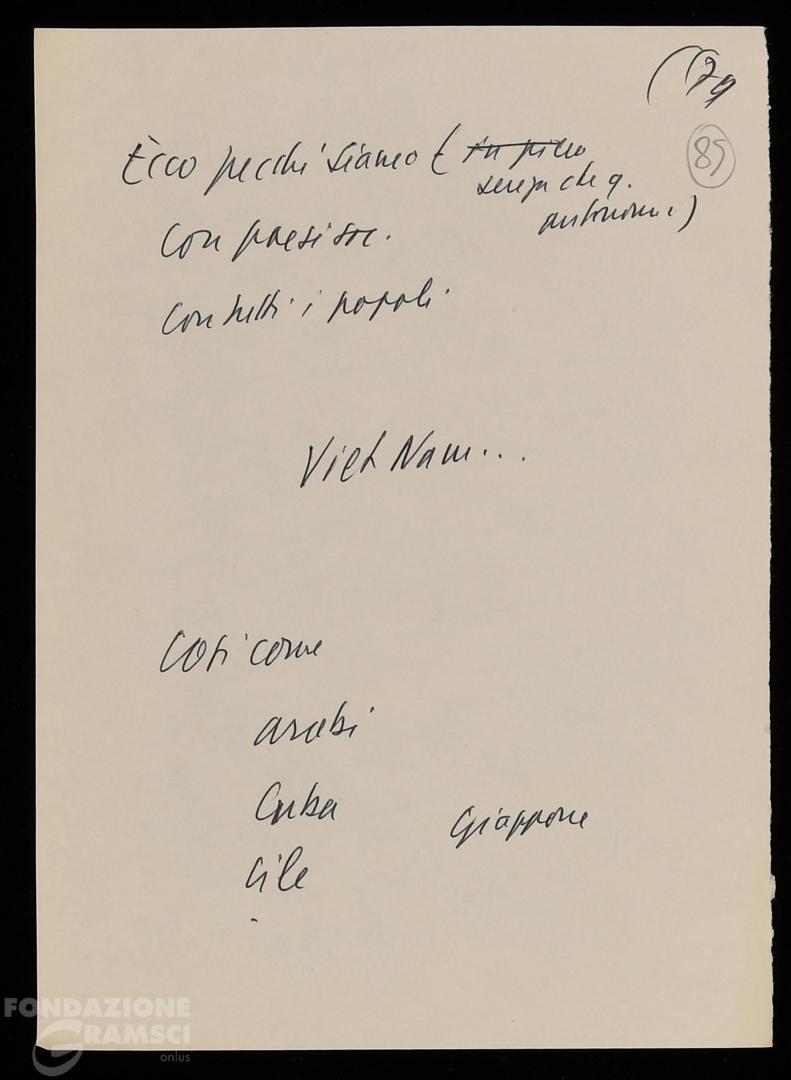 85
Ecco perché siamo (in pieno
senza che q.
autonomi)
con paesi soc.
con tutti i popoli
Viet Nam...
Così come
arabi
Cuba
Giappone
Cile
FONDAZIONE
GRAMSCI
onlus